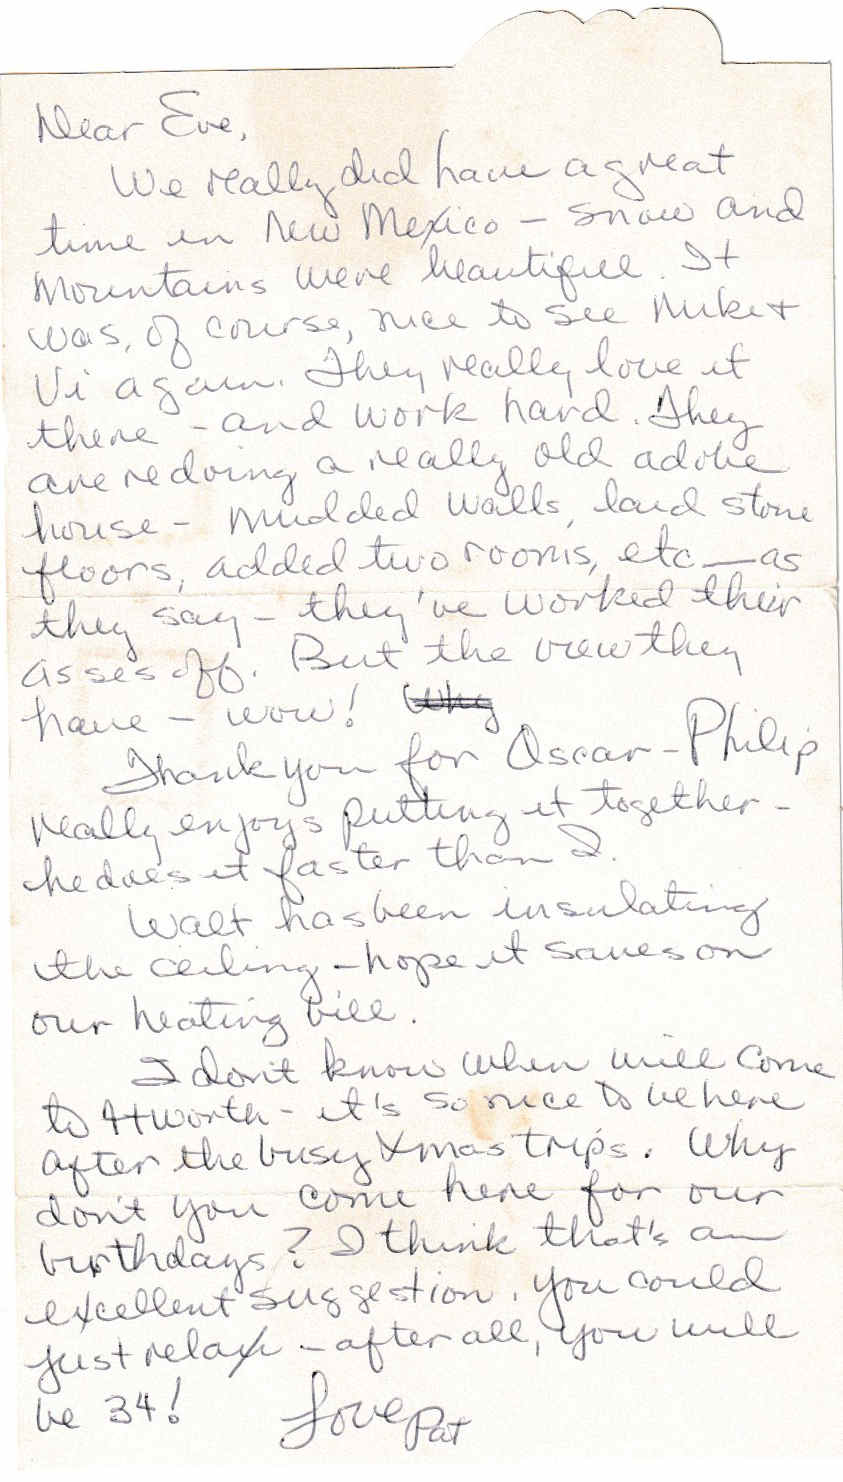 Dear Eve,
We really did have a great
time in New Mexico – snow and
mountains were beautiful. It
was, of course, nice to see Mike +
Vi again. They really love it
there – and work hard. They
are redoing a really old adobe
house – mudded walls, laid stone
floors, added two rooms, etc – as
they say – they've worked their
asses off. But the view they
have – wow! Why
Thank you for Oscar – Philip
really enjoys putting it together –
he does it faster than I.
Walt has been insulating
the ceiling – hope it saves on
our heating bill.
I don't know when will come
to – it's so nice to be here
after the busy Xmas trips. Why
don't you come here for our
birthdays? I think that's an
excellent suggestion. You could
just relax – after all, you will
be 34! Love Pat